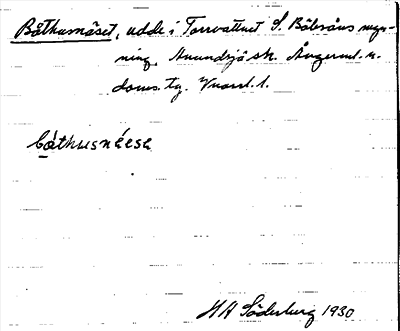 Båthusnäset, udde i Tarvattnet S. Bölesåns myn-
ning, Anundsjö sn. Ångerml. n.
doms. tg.
båthusnéese
HA Söderberg 1930